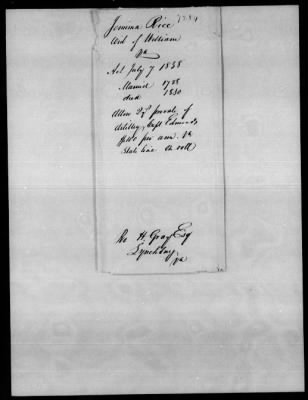 Jemima Rice
Wid of William
Va
Act July 7 1838
Married 1788
died 1830
Allow 2/3 private of
Artillery, Capt Edmonds
per ann. Va
State line on roll
Wo H. Gray Esq
Lynchburg
Va